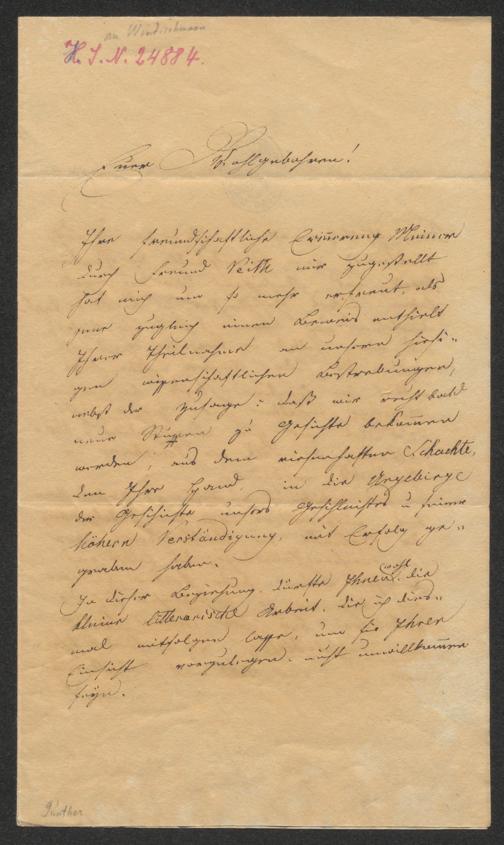 an Windischmann
H. I. N. 24884.
Euer Wohlgebohren!
Ihre freundschaftliche Erinnerung Meiner
durch Freund Veith mir zugestellt
hat mich um so mehr erfreut, als
jene zugleich einen Beweis enthielt
Ihrer Theilnahme an unsern hiesi=
gen wissenschaftlichen Bestrebungen,
nebst der Zusage: daß wir recht bald
neue zu Gesichte bekommen
werden, aus dem riesenhaften Schachte,
den Ihre Hand, in die Urgebirge
der Geschichte unsers Geschlechtes u seiner
höhern Verständigung, mit Erfolg ge=
graben haben.
In dieser Beziehung dürfte Ihnen wohl die
kleine litterarische Arbeit, die ich dies=
mal mitfolgen lasse, um sie Ihrer
Einsicht vorzulegen, nicht unwillkommen
seyn.
Günther